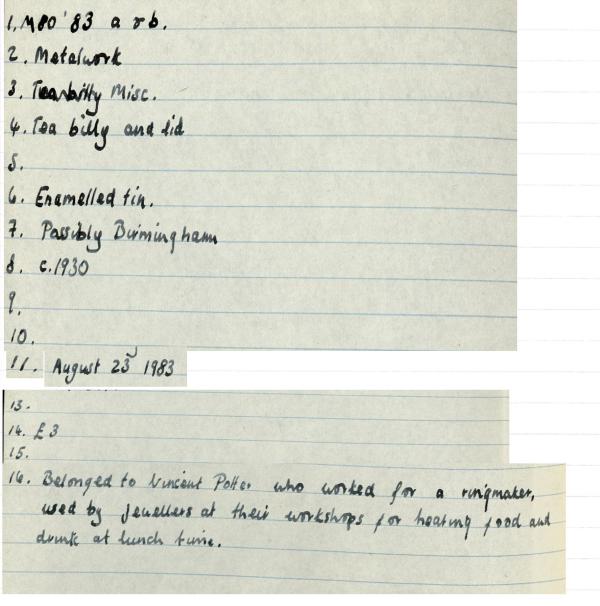 1. M80 '83 a & b.
2. Metalwork
3. Misc.
4. Tea billy and lid
5.
6. Enamelled tin.
7. Possibly Birmingham
8. c.1930
9.
10.
11. August 23 1983
13.
14. £3
15.
16. Belonged to Vincent Potter who worked for a ringmaker,
used by jewellers at their workshops for heating food and
drink at lunch time.